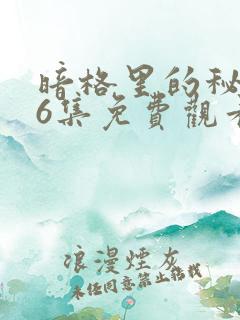 暗格里的秘
6集免費觀看
浪漫煙灰
未经同意禁止转载